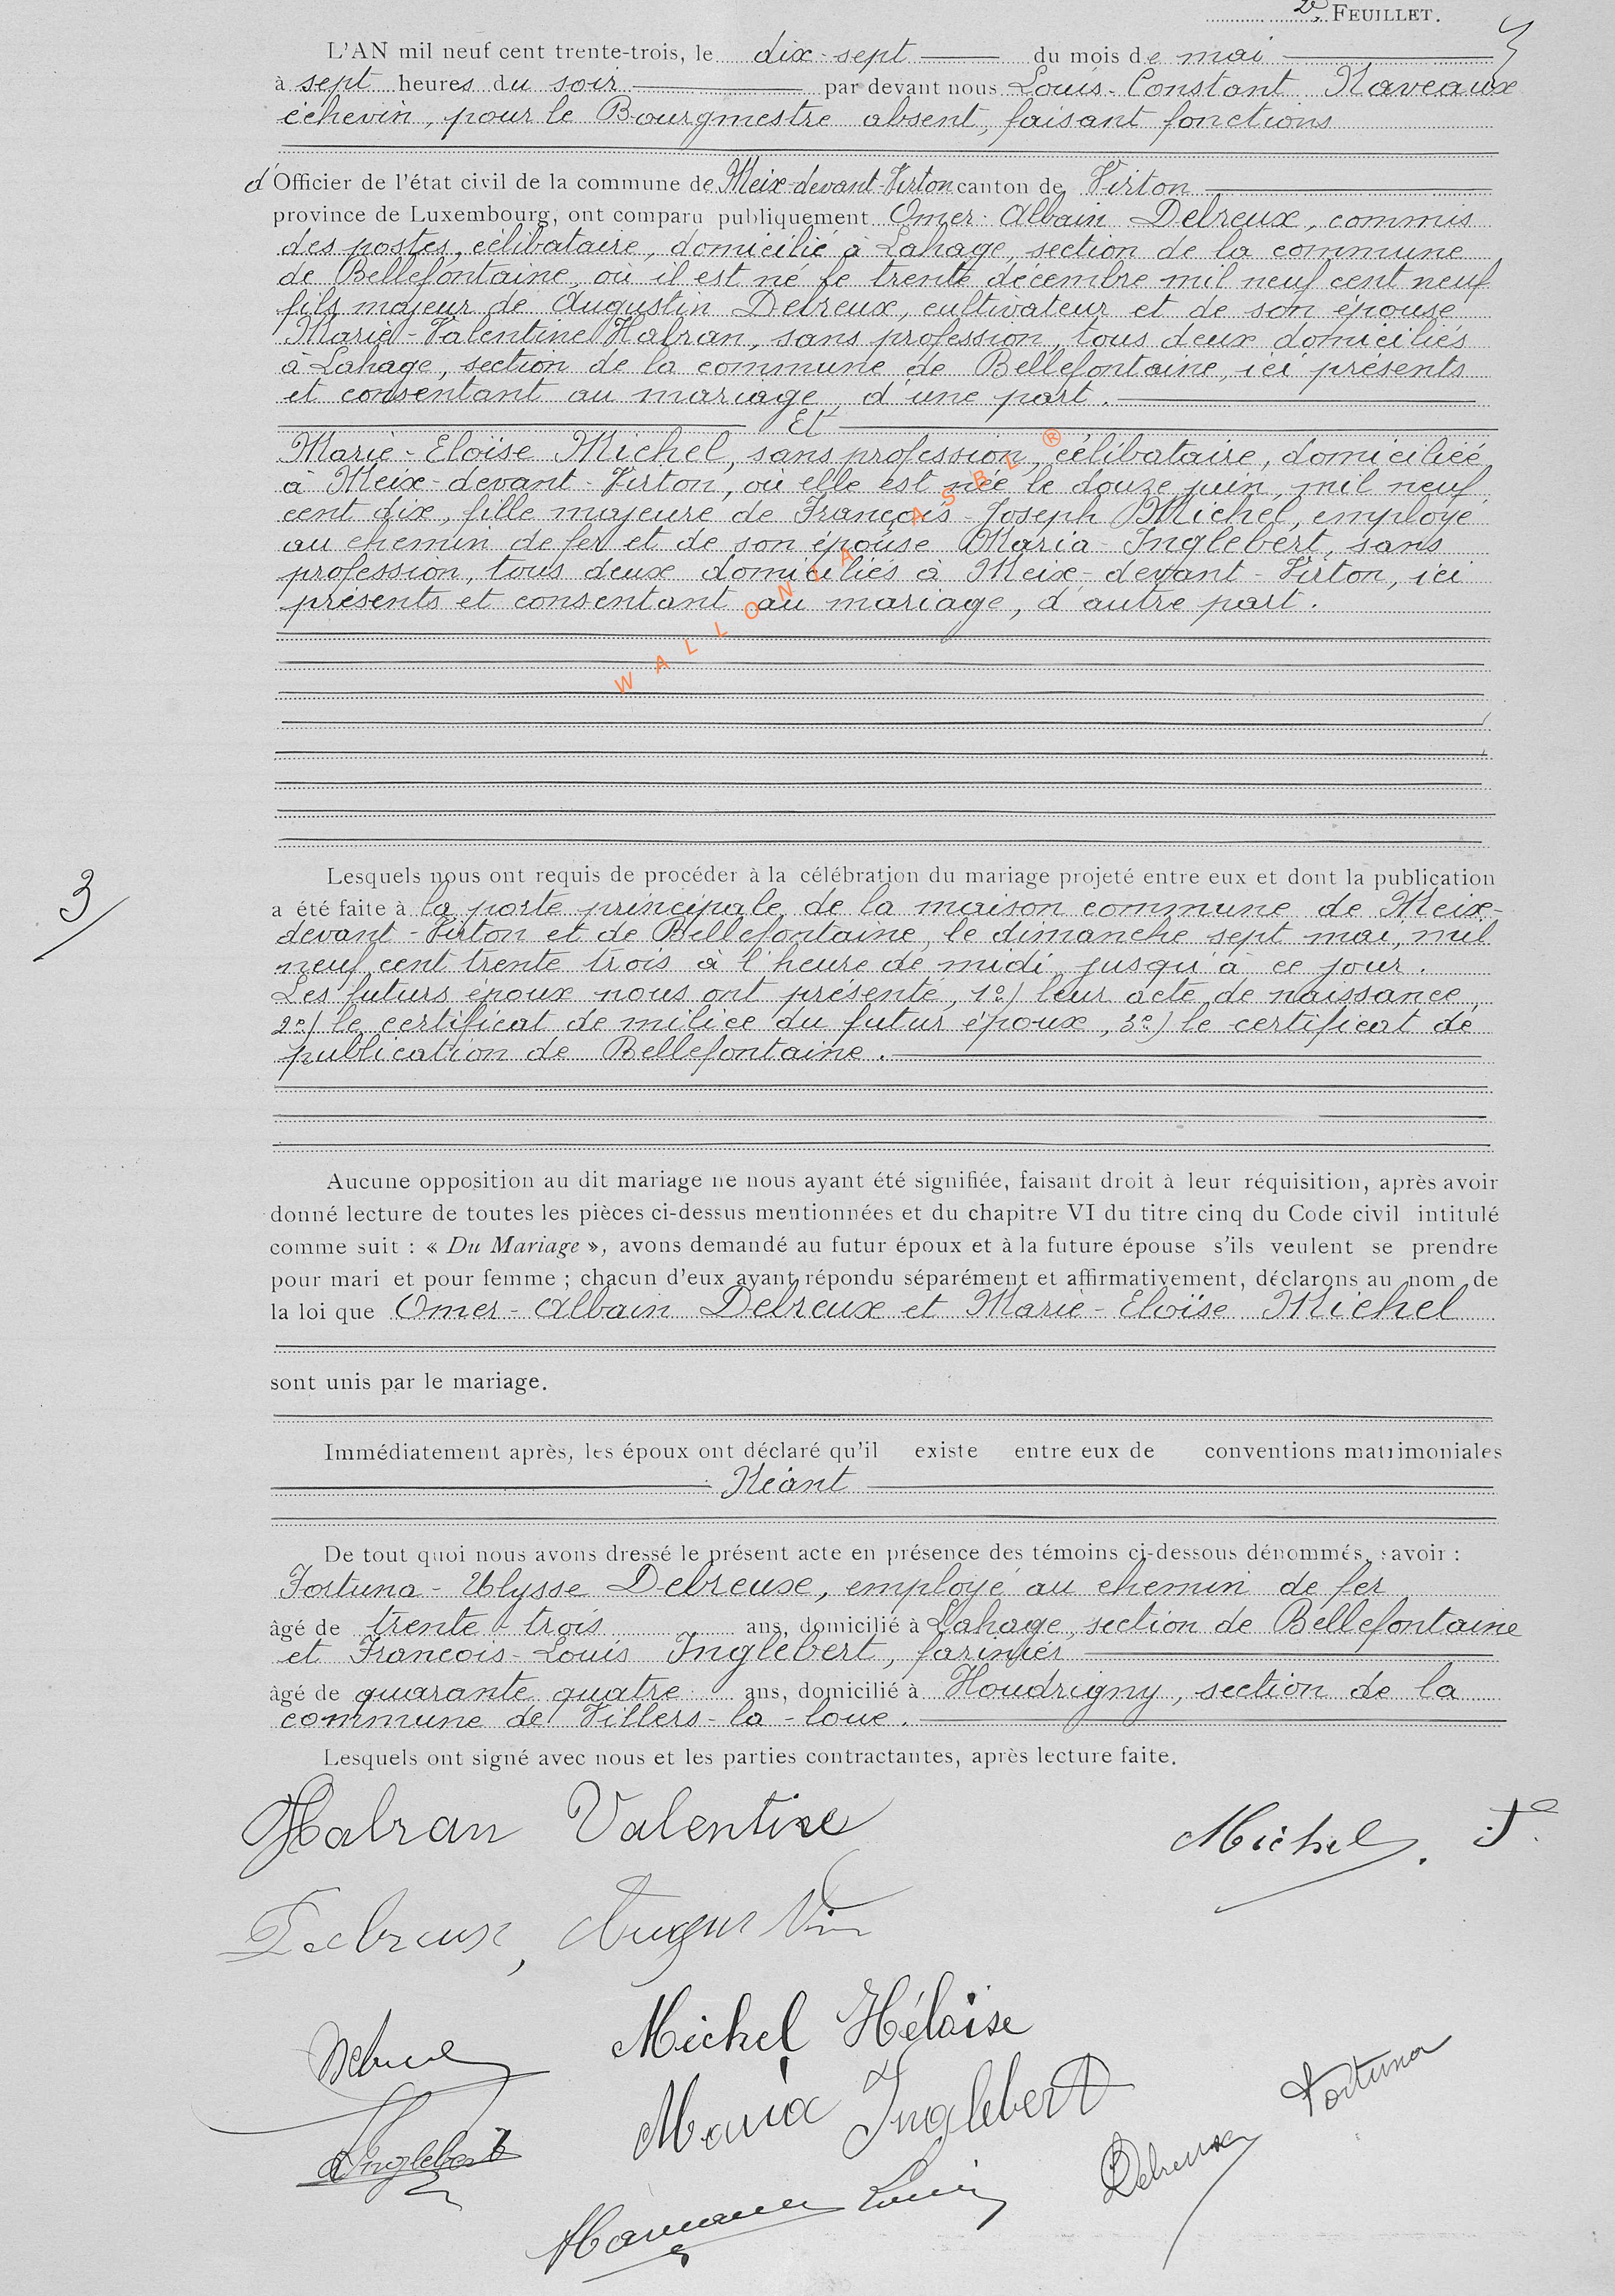 2e FEUILLET.
L'AN mil neuf cent trente-trois, le dix-sept du mois de mai
à sept heures du soir par devant nous Louis-Constant Naveaux
échevin, pour le Bourgmestre absent, faisant fonctions
d'Officier de l'état civil de la commune de Meix-devant-Virton canton de Virton
province de Luxembourg, ont comparu publiquement Omer-Albain Debreux, commis
des postes, célibataire, domicilié à Lahage, section de la commune
de Bellefontaine, où il est né le trente décembre mil neuf cent neuf
fils majeur de Augustin Debreux, cultivateur et de son épouse
Marie-Valentine Habran, sans profession, tous deux domiciliés
à Lahage, section de la commune de Bellefontaine, ici présents
et consentant au mariage, d'une part.
Et
Marie-Eloïse Michel, sans profession, célibataire, domiciliée
à Meix-devant-Virton, où elle est née le douze juin, mil neuf
cent dix, fille majeure de François-Joseph Michel, employé
au chemin de fer et de son épouse Maria Inglebert, sans
profession, tous deux domiciliés à Meix-devant-Virton, ici
présents et consentant au mariage, d'autre part.
WALLONIA ASBL ®
3
Lesquels nous ont requis de procéder à la célébration du mariage projeté entre eux et dont la publication
a été faite à la porte principale de la maison commune de Meix-
devant-Virton et de Bellefontaine, le dimanche sept mai, mil
neuf cent trente trois à l'heure de midi jusqu'à ce jour.
Les futurs époux nous ont présenté, 1o) leur acte de naissance,
2o) le certificat de milice du futur époux, 3o) le certificat de
publication de Bellefontaine.
Aucune opposition au dit mariage ne nous ayant été signifiée, faisant droit à leur réquisition, après avoir
donné lecture de toutes les pièces ci-dessus mentionnées et du chapitre VI du titre cinq du Code civil intitulé
comme suit : « Du Mariage », avons demandé au futur époux et à la future épouse s'ils veulent se prendre
pour mari et pour femme ; chacun d'eux ayant répondu séparément et affirmativement, déclarons au nom de
la loi que Omer-Albain Debreux et Marie-Eloïse Michel
sont unis par le mariage.
Immédiatement après, les époux ont déclaré qu'il existe entre eux de conventions matrimoniales
Néant
De tout quoi nous avons dressé le présent acte en présence des témoins ci-dessous dénommés, savoir :
Fortuna-Ulysse Debreuxe, employé au chemin de fer
âgé de trente trois ans, domicilié à Lahage, section de Bellefontaine
et François-Louis Inglebert, farinier
âgé de quarante quatre ans, domicilié à Houdrigny, section de la
commune de Villers-la-loue.
Lesquels ont signé avec nous et les parties contractantes, après lecture faite.
Habran Valentine
Michel. J
Debreux, Augustin
Michel Héloïse
Maria Inglebert
Inglebert
Debreux Fortuna
Louis